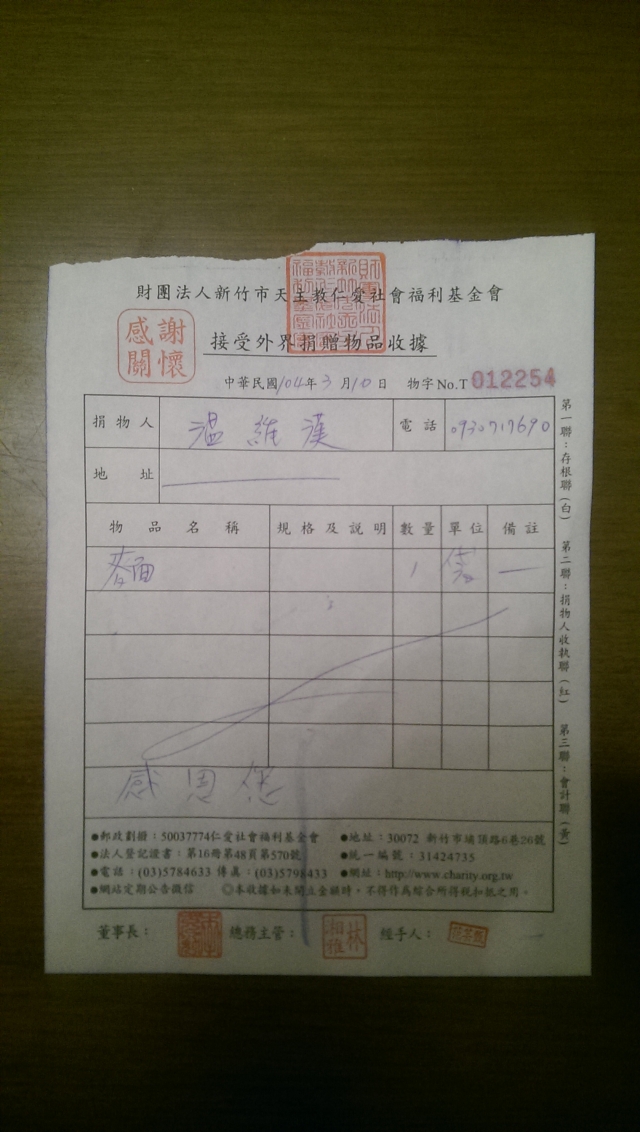 財團法人新竹市天主教仁愛社會福利基金會
感謝
關懷
接受外界捐贈物品收據
中華民國104年3月10日 物字No.T 012254
捐物人 溫維漢 電話 0930717690
地址
物品名稱 規格及說明 數量 單位 備註
麥面 1 袋
感恩您
●郵政劃撥：50037774仁愛社會福利基金會 ●地址：30072 新竹市埔頂路6巷26號
●法人登記證書：第16冊第48頁第570號 ●統一編號：31424735
●電話：(03)5784633 傳真：(03)5798433 ●網址：http://www.charity.org.tw
●網站定期公告徵信 ◎本收據如未開立金額時，不得作為綜合所得稅扣抵之用。
董事長： 總務主管： 林湘維 經手人：
第一聯：存根聯(白) 第二聯：捐物人收執聯(紅) 第三聯：會計聯(黃)